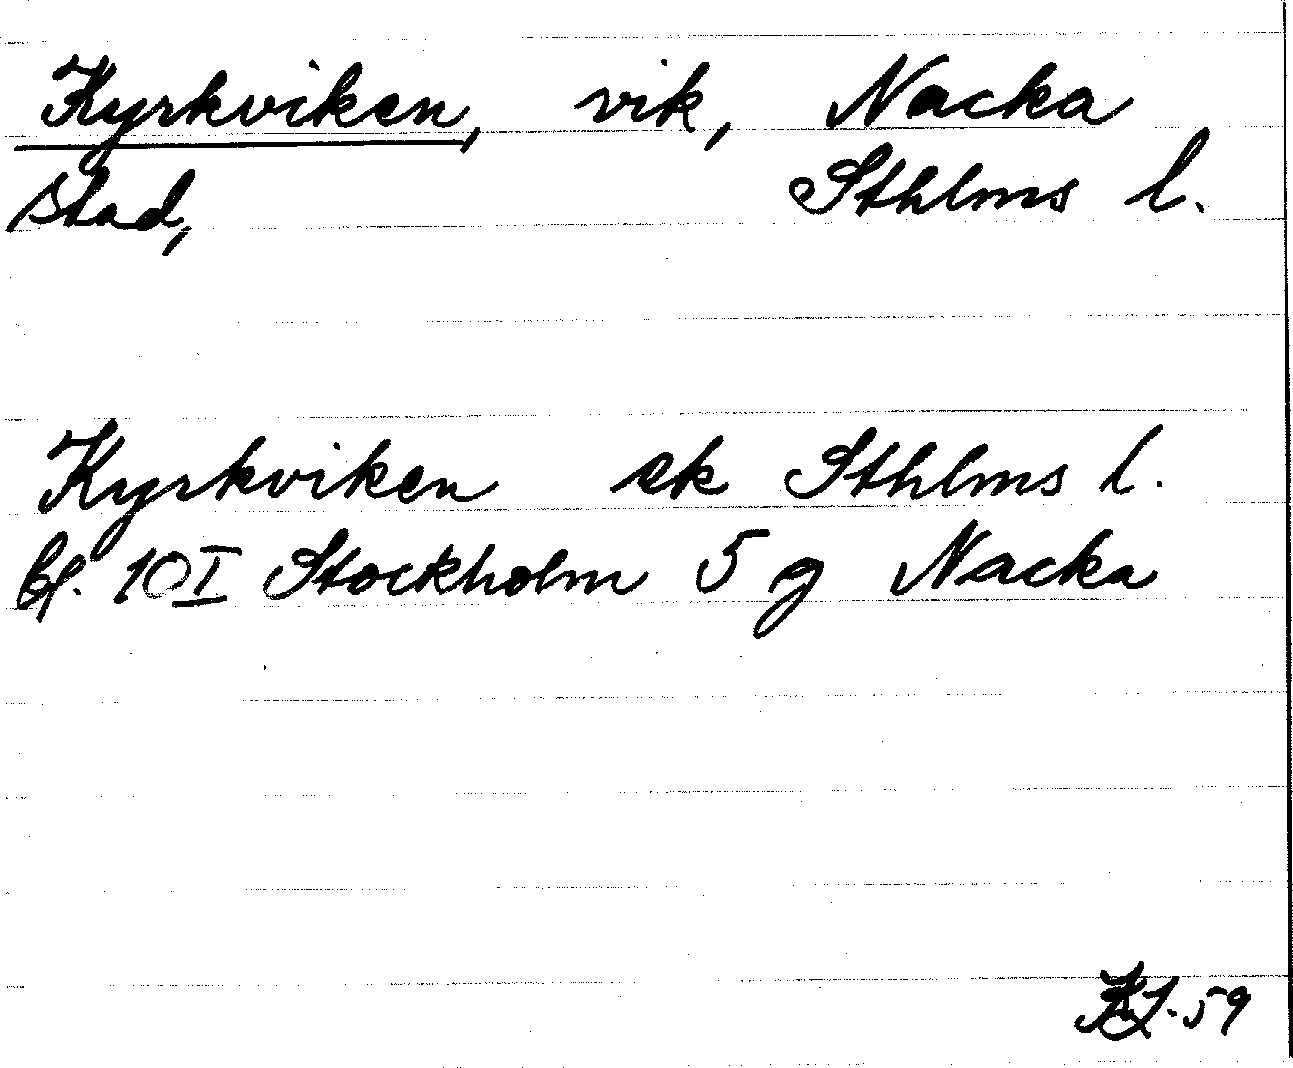 Kyrkviken, vik, Nacka
stad, Sthlms l.
Kyrkviken ek Sthlms l.
bl. 10 I Stockholm 5 g Nacka
59